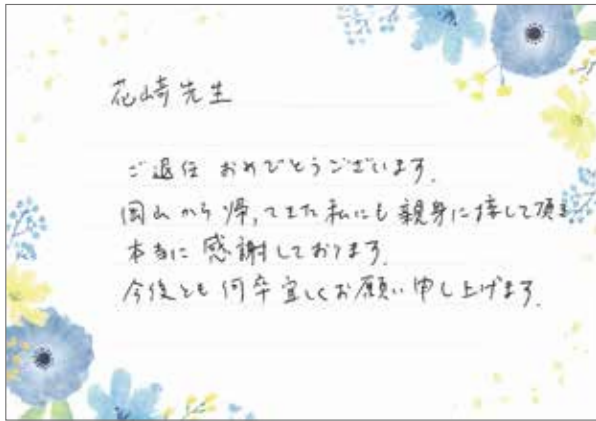 花崎先生
ご退任 おめでとうございます。
岡山から帰ってきた私にも親身に接して頂き
本当に感謝しております。
今後とも何卒宜しくお願い申し上げます。